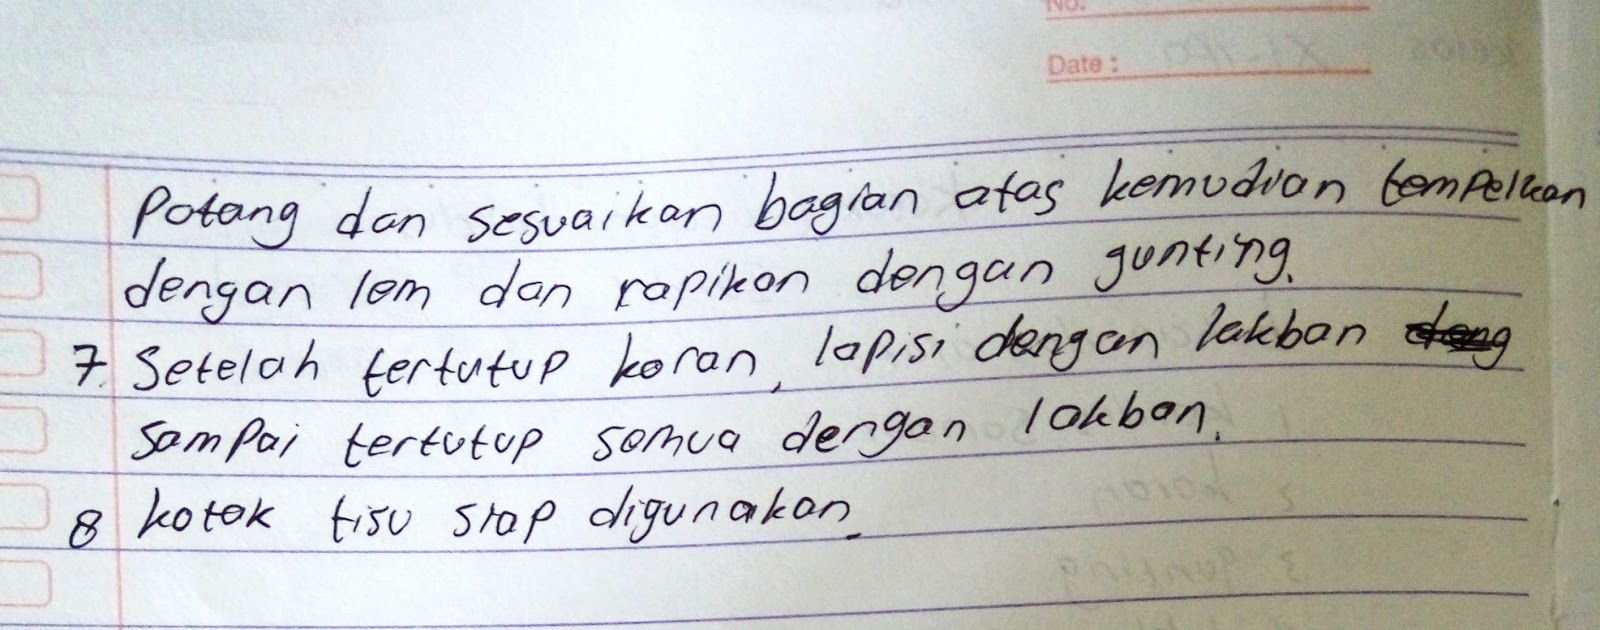 No.
Date :
Potong dan sesuaikan bagian atas kemudian tempelkan
dengan lem dan rapikan dengan gunting.
7. Setelah tertutup koran, lapisi dengan lakban
sampai tertutup semua dengan lakban.
8 kotak tisu siap digunakan.